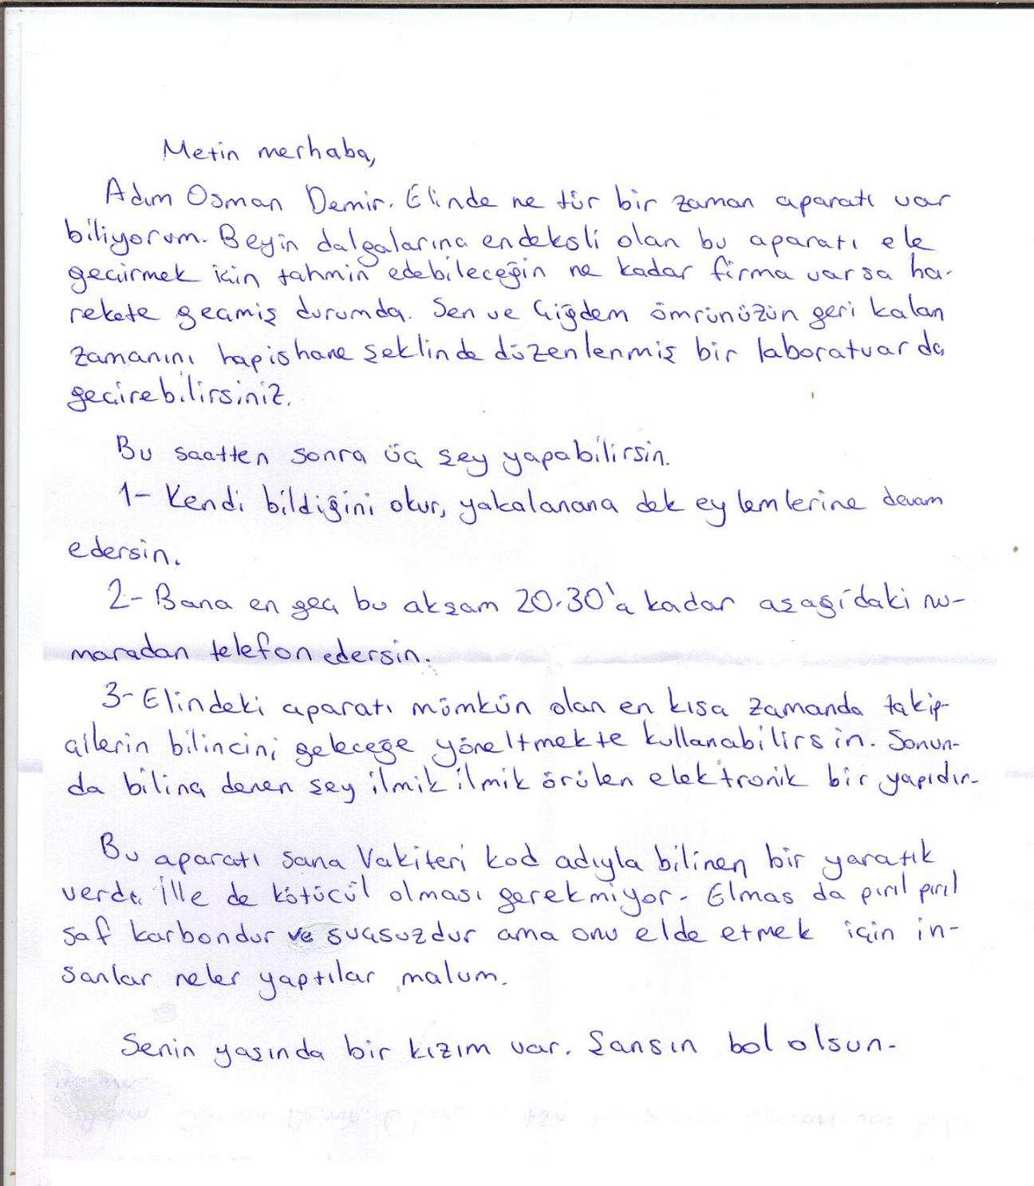 Metin merhaba,
Adım Osman Demir. Elinde ne tür bir zaman aparatı var
biliyorum. Beyin dalgalarına endeksli olan bu aparatı ele
geçirmek için tahmin edebileceğin ne kadar firma varsa ha-
rekete geçmiş durumda. Sen ve Çiğdem ömrünüzün geri kalan
zamanını hapishane şeklinde düzenlenmiş bir laboratuarda
geçirebilirsiniz.
Bu saatten sonra üç şey yapabilirsin.
1- Kendi bildiğini okur, yakalanana dek eylemlerine devam
edersin.
2- Bana en geç bu akşam 20.30'a kadar aşağıdaki nu-
maradan telefon edersin.
3- Elindeki aparatı mümkün olan en kısa zamanda takip-
çilerin bilincini geleceğe yöneltmekte kullanabilirsin. Sonun-
da bilinç denen şey ilmik ilmik örülen elektronik bir yapıdır.
Bu aparatı sana Vakiteri kod adıyla bilinen bir yaratık
verdi. İlle de kötücül olması gerekmiyor. Elmas da pırıl pırıl
saf karbondur ve suçsuzdur ama onu elde etmek için in-
sanlar neler yaptılar malum.
Senin yaşında bir kızım var. Şansın bol olsun.